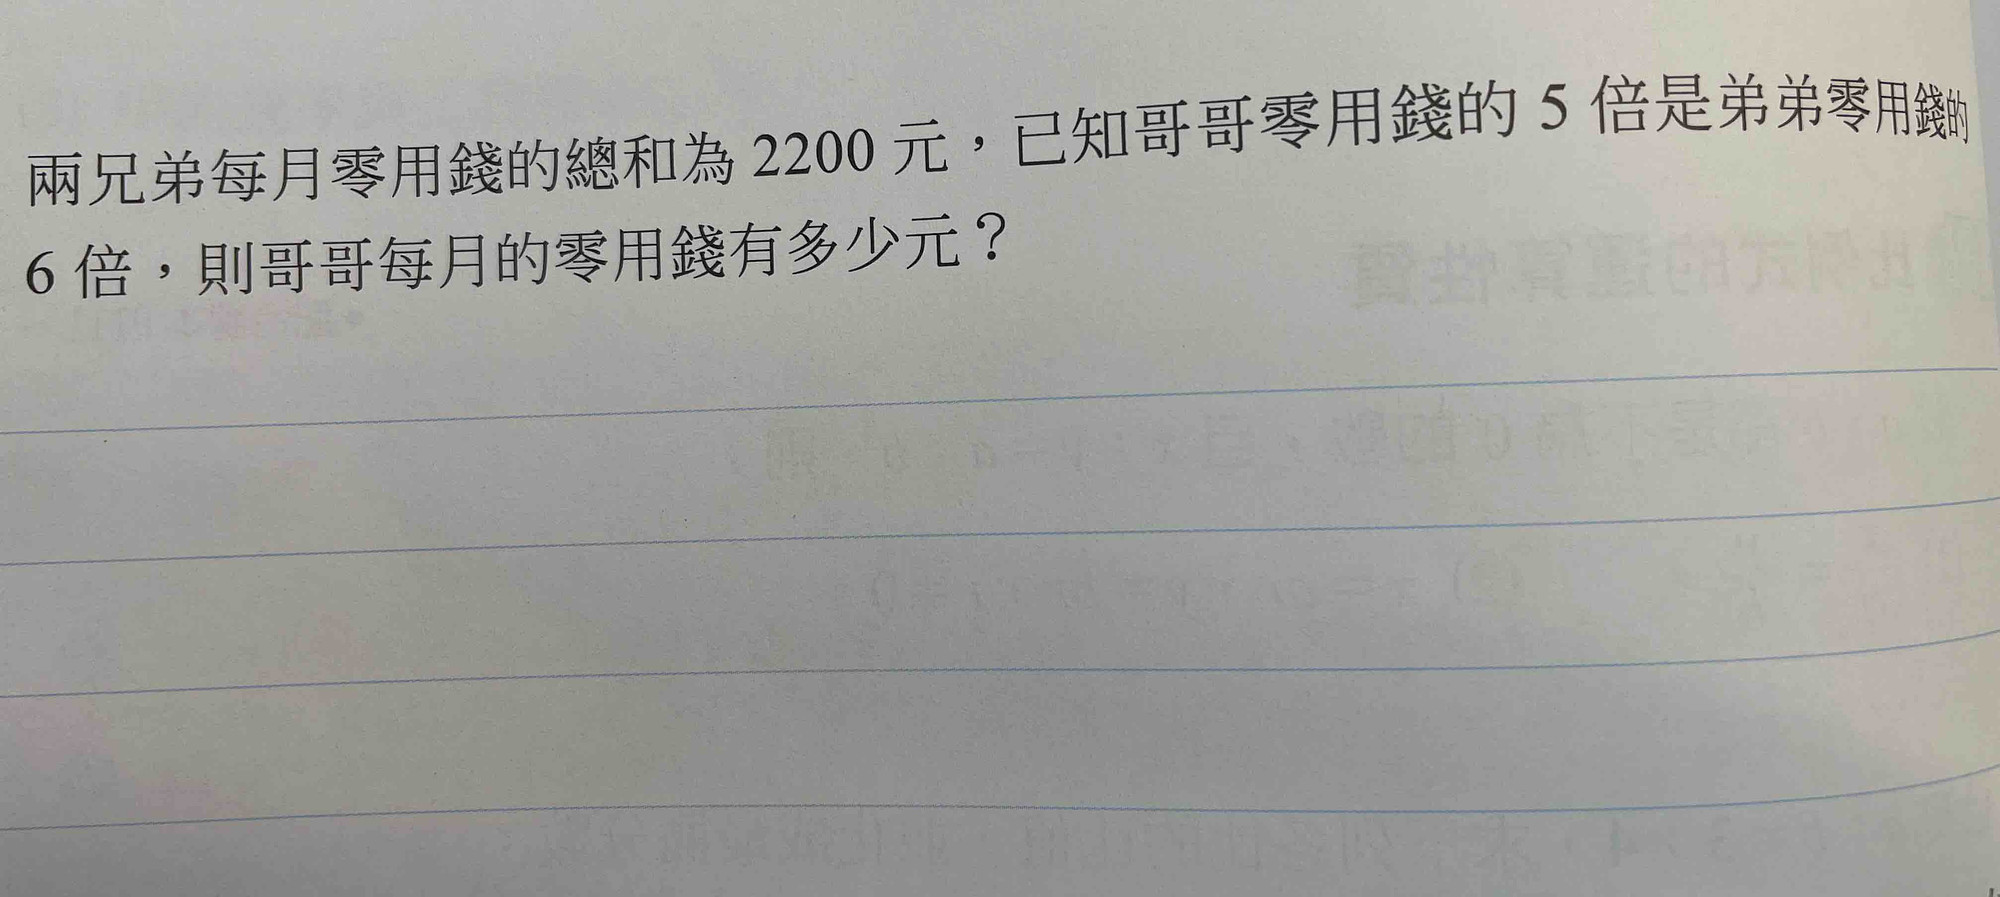 兩兄弟每月零用錢的總和為 2200 元，已知哥哥零用錢的 5 倍是弟弟零用錢的
6 倍，則哥哥每月的零用錢有多少元？